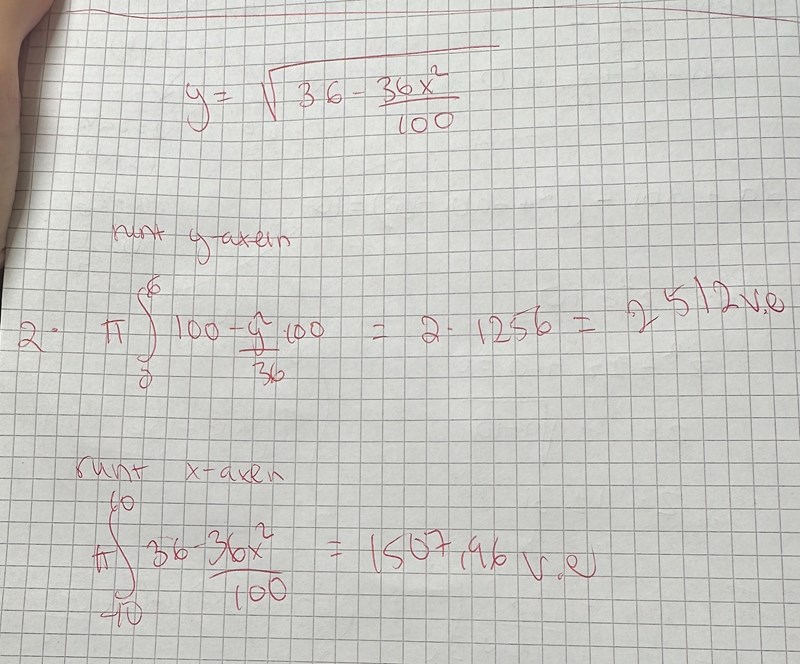 y = √(36 - 36x²/100)
runt y-axeln
2 · π ∫₀⁶ 100 - y²/36 · 100 = 2 · 1256 = 2512 v.e
runt x-axeln
π ∫₋₁₀¹⁰ 36 - 36x²/100 = 1507,96 v.e